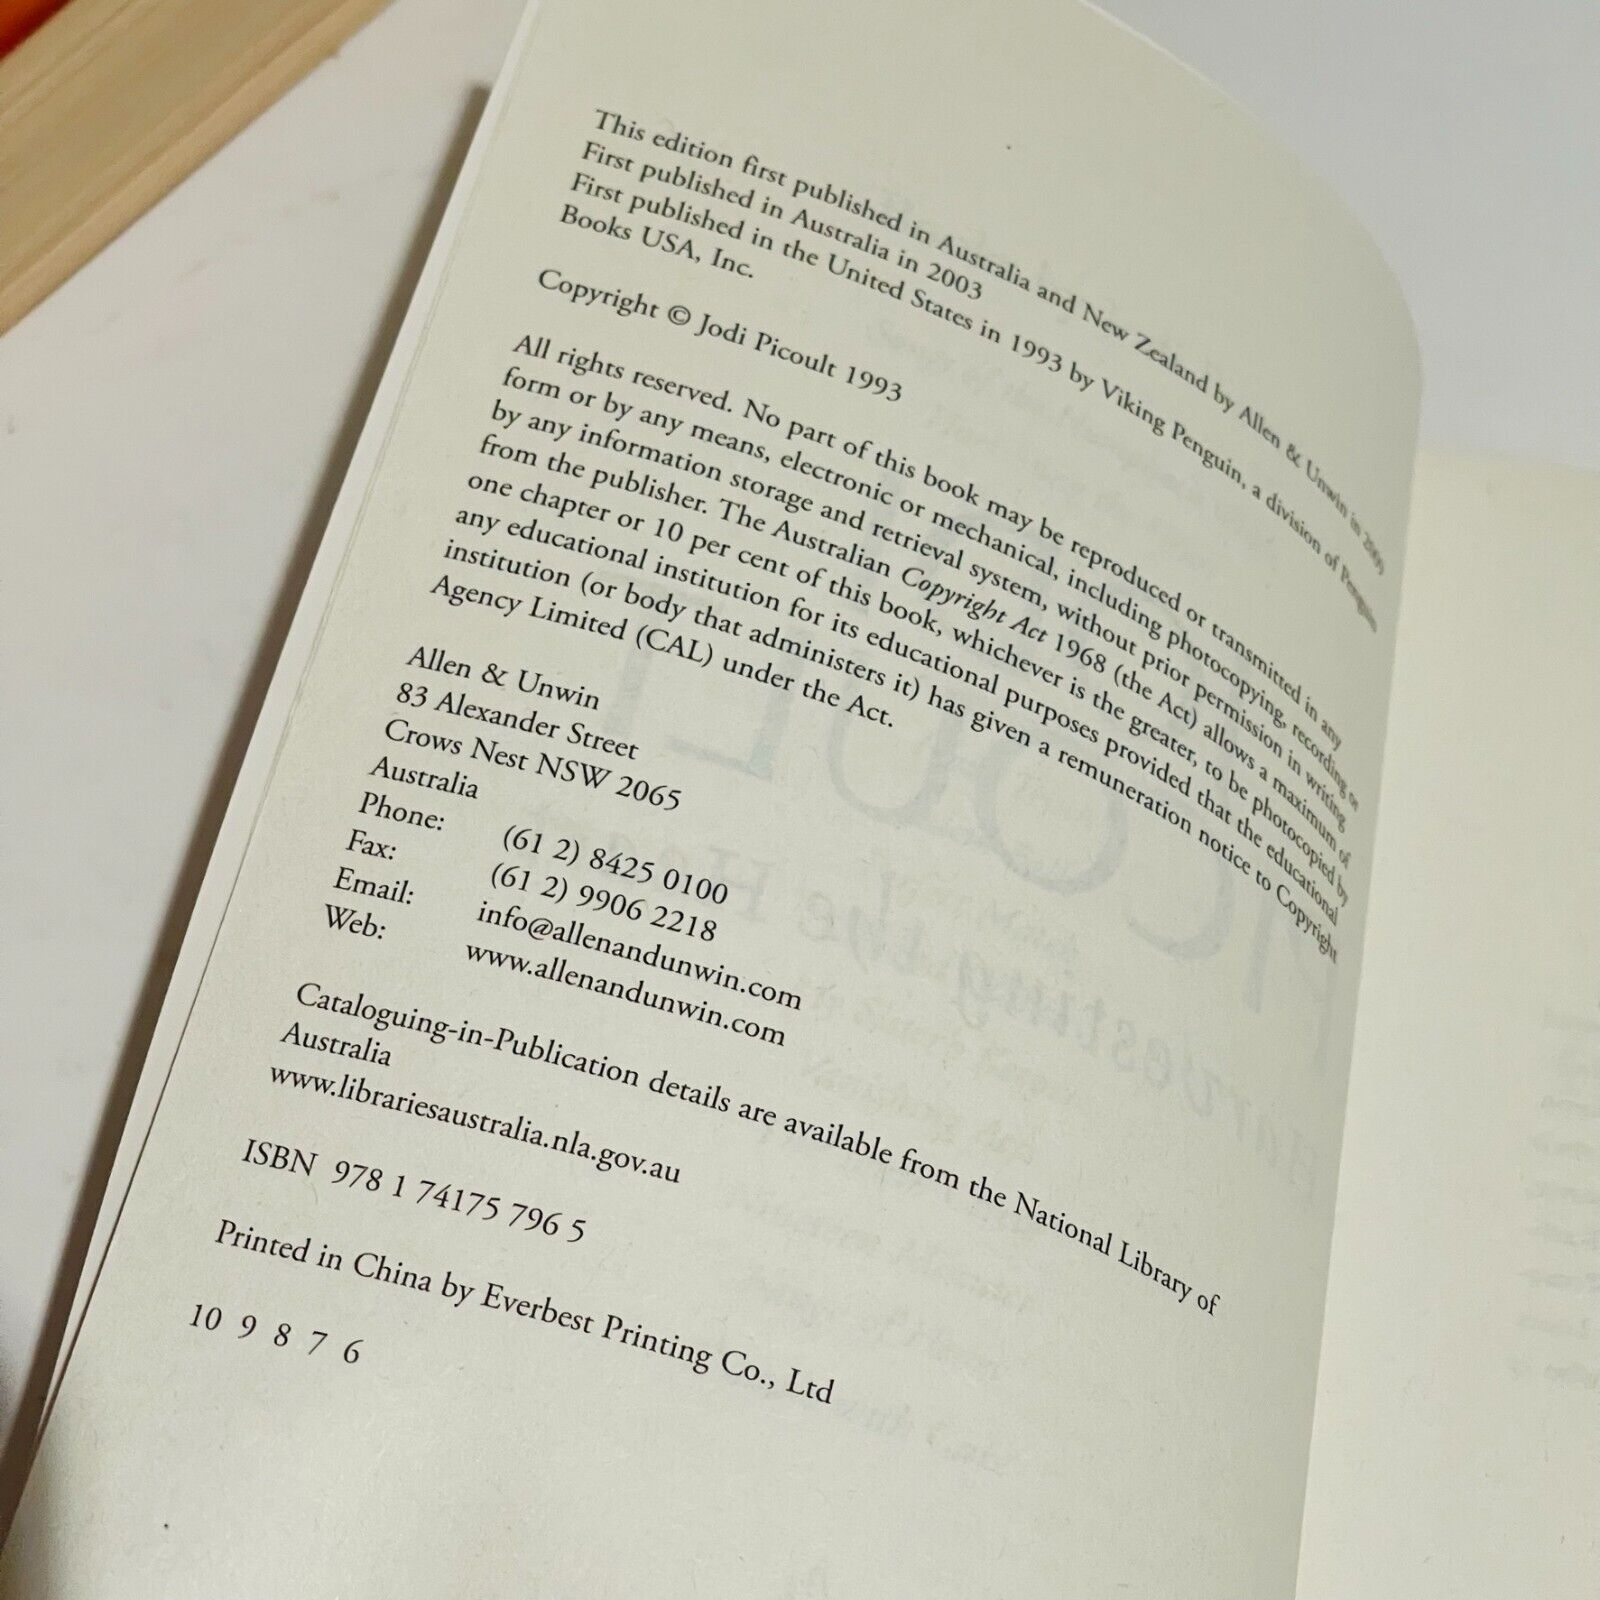 This edition first published in Australia and New Zealand by Allen & Unwin in 2009
First published in Australia in 2003
First published in the United States in 1993 by Viking Penguin, a division of Penguin
Books USA, Inc.
Copyright © Jodi Picoult 1993
All rights reserved. No part of this book may be reproduced or transmitted in any
form or by any means, electronic or mechanical, including photocopying, recording or
by any information storage and retrieval system, without prior permission in writing
from the publisher. The Australian Copyright Act 1968 (the Act) allows a maximum of
one chapter or 10 per cent of this book, whichever is the greater, to be photocopied by
any educational institution for its educational purposes provided that the educational
institution (or body that administers it) has given a remuneration notice to Copyright
Agency Limited (CAL) under the Act.
Allen & Unwin
83 Alexander Street
Crows Nest NSW 2065
Australia
Phone: (61 2) 8425 0100
Fax: (61 2) 9906 2218
Email: info@allenandunwin.com
Web: www.allenandunwin.com
Cataloguing-in-Publication details are available from the National Library of
Australia
www.librariesaustralia.nla.gov.au
ISBN 978 1 74175 796 5
Printed in China by Everbest Printing Co., Ltd
10 9 8 7 6